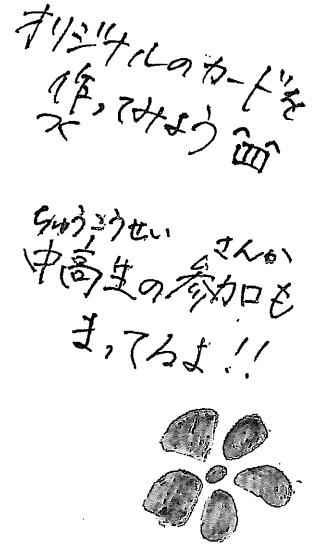 オリジナルのカードを
作ってみよう
ちゅうこうせい さんか
中高生の参加も
まってるよ!!